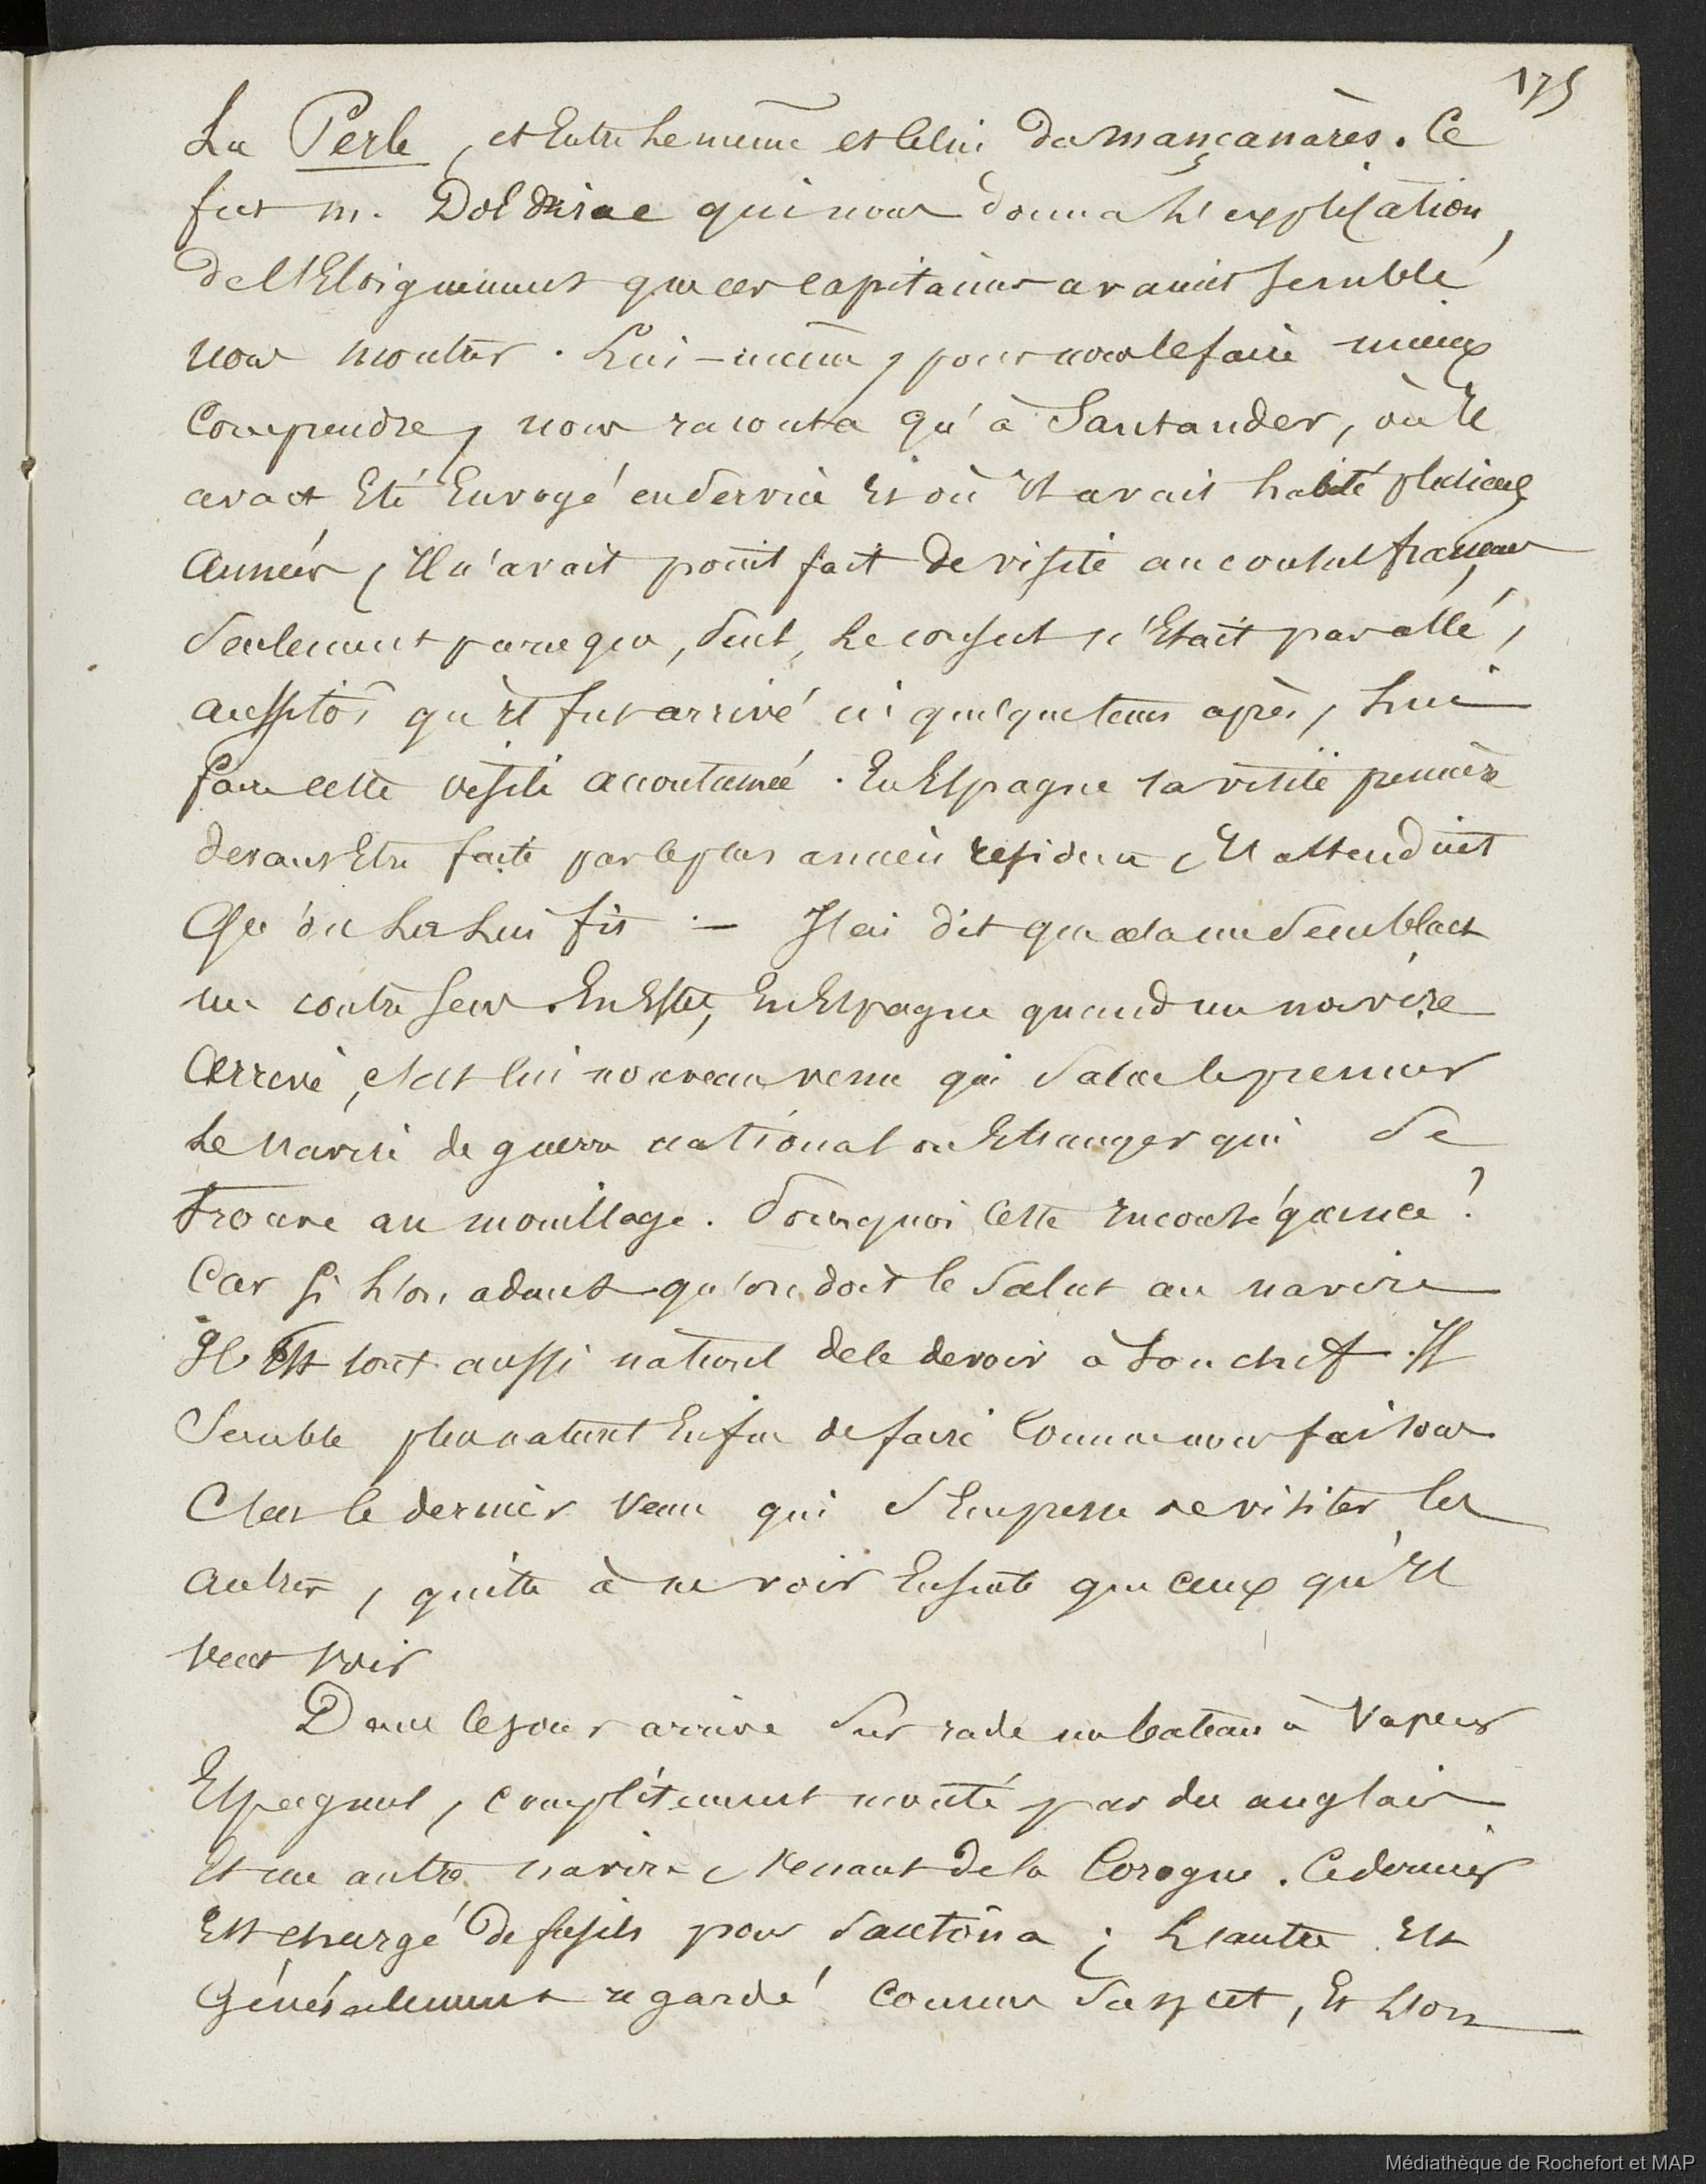 175
La Perle, et entre le même et celui du mançanarès. Ce
fut m. Doldriae qui nous donna l'explication
de l'éloignement que ces capitaines avaient semblé
nous montrer. Lui-même, pour nous le faire mieux
comprendre, nous raconta qu'à Santander, où il
avait été envoyé en service et où il avait habité plusieurs
années, il n'avait point fait de visite au consul français
seulement parceque, seul, le consul n'était pas allé,
aussitôt qu'il fut arrivé ni quelque tems après, lui
faire cette visite accoutumée. En Espagne la visite première
devant être faite par le plus ancien résident, il attendait
qu'on la lui fit. — J'ai dit que cela me semblait
un contre sens. En effet, en Espagne quand un navire
arrive, c'est lui nouveau venu qui salue le premier
le navire de guerre national ou étranger qui se
trouve au mouillage. Pourquoi cette inconséquence?
Car si l'on admet qu'on doit le salut au navire
il est tout aussi naturel de le devoir à son chef. Il
semble plus naturel enfin de faire comme nous faisons
c'est le dernier venu qui s'empresse de visiter les
autres, quitte à ne voir ensuite que ceux qu'il
veut voir
Dans le jour arrive sur rade un bateau à vapeur
Espagnol, complètement monté par des anglais
et un autre navire venant de la Corogne. Ce dernier
est chargé de fusils pour Santoña; l'autre est
généralement regardé comme suspect, et l'on
Médiathèque de Rochefort et MAP